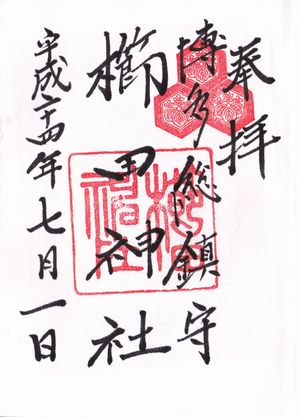 奉拝
博多総鎮守
櫛田神社
平成二十四年七月一日